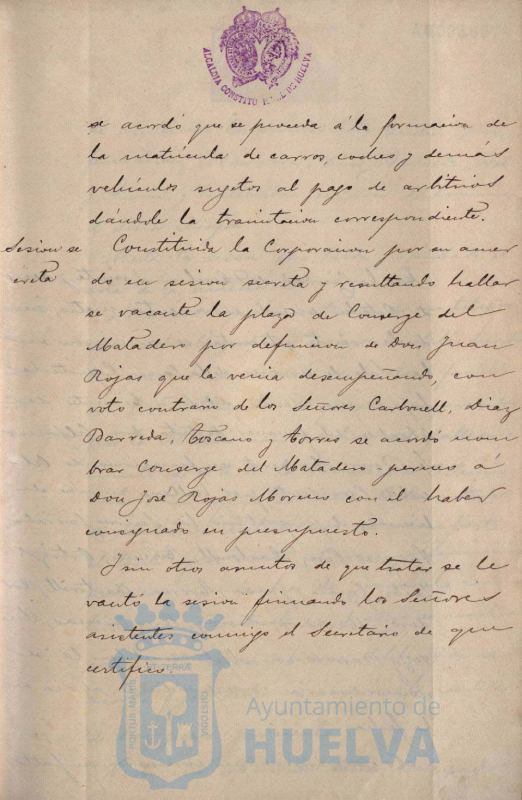 ALCALDIA CONSTITU DE HUELVA
se acordó que se proceda á la formacion de
la matricula de carros, coches y demás
vehiculos sujetos al pago de arbitrios
dándole la tramitacion correspondiente.
Sesion se
creta
Constituida la Corporacion por su acuer
do en sesion secreta y resultando hallar
se vacante la plaza de Conserge del
Matadero por defuncion de Don Juan
Rojas que la venia desempeñando, con
voto contrario de los Señores Carbonell, Diaz
Barreda, Toscano y Torres se acordó nom
brar Conserge del Matadero á
Don José Rojas Moreno con el haber
consignado en presupuesto.
Y sin otros asuntos de que tratar se le
vantó la sesion firmando los Señores
asistentes conmigo el Secretario de que
certifico.
PORTUS MARIS ET TERRÆ CUSTODIA
Ayuntamiento de
HUELVA